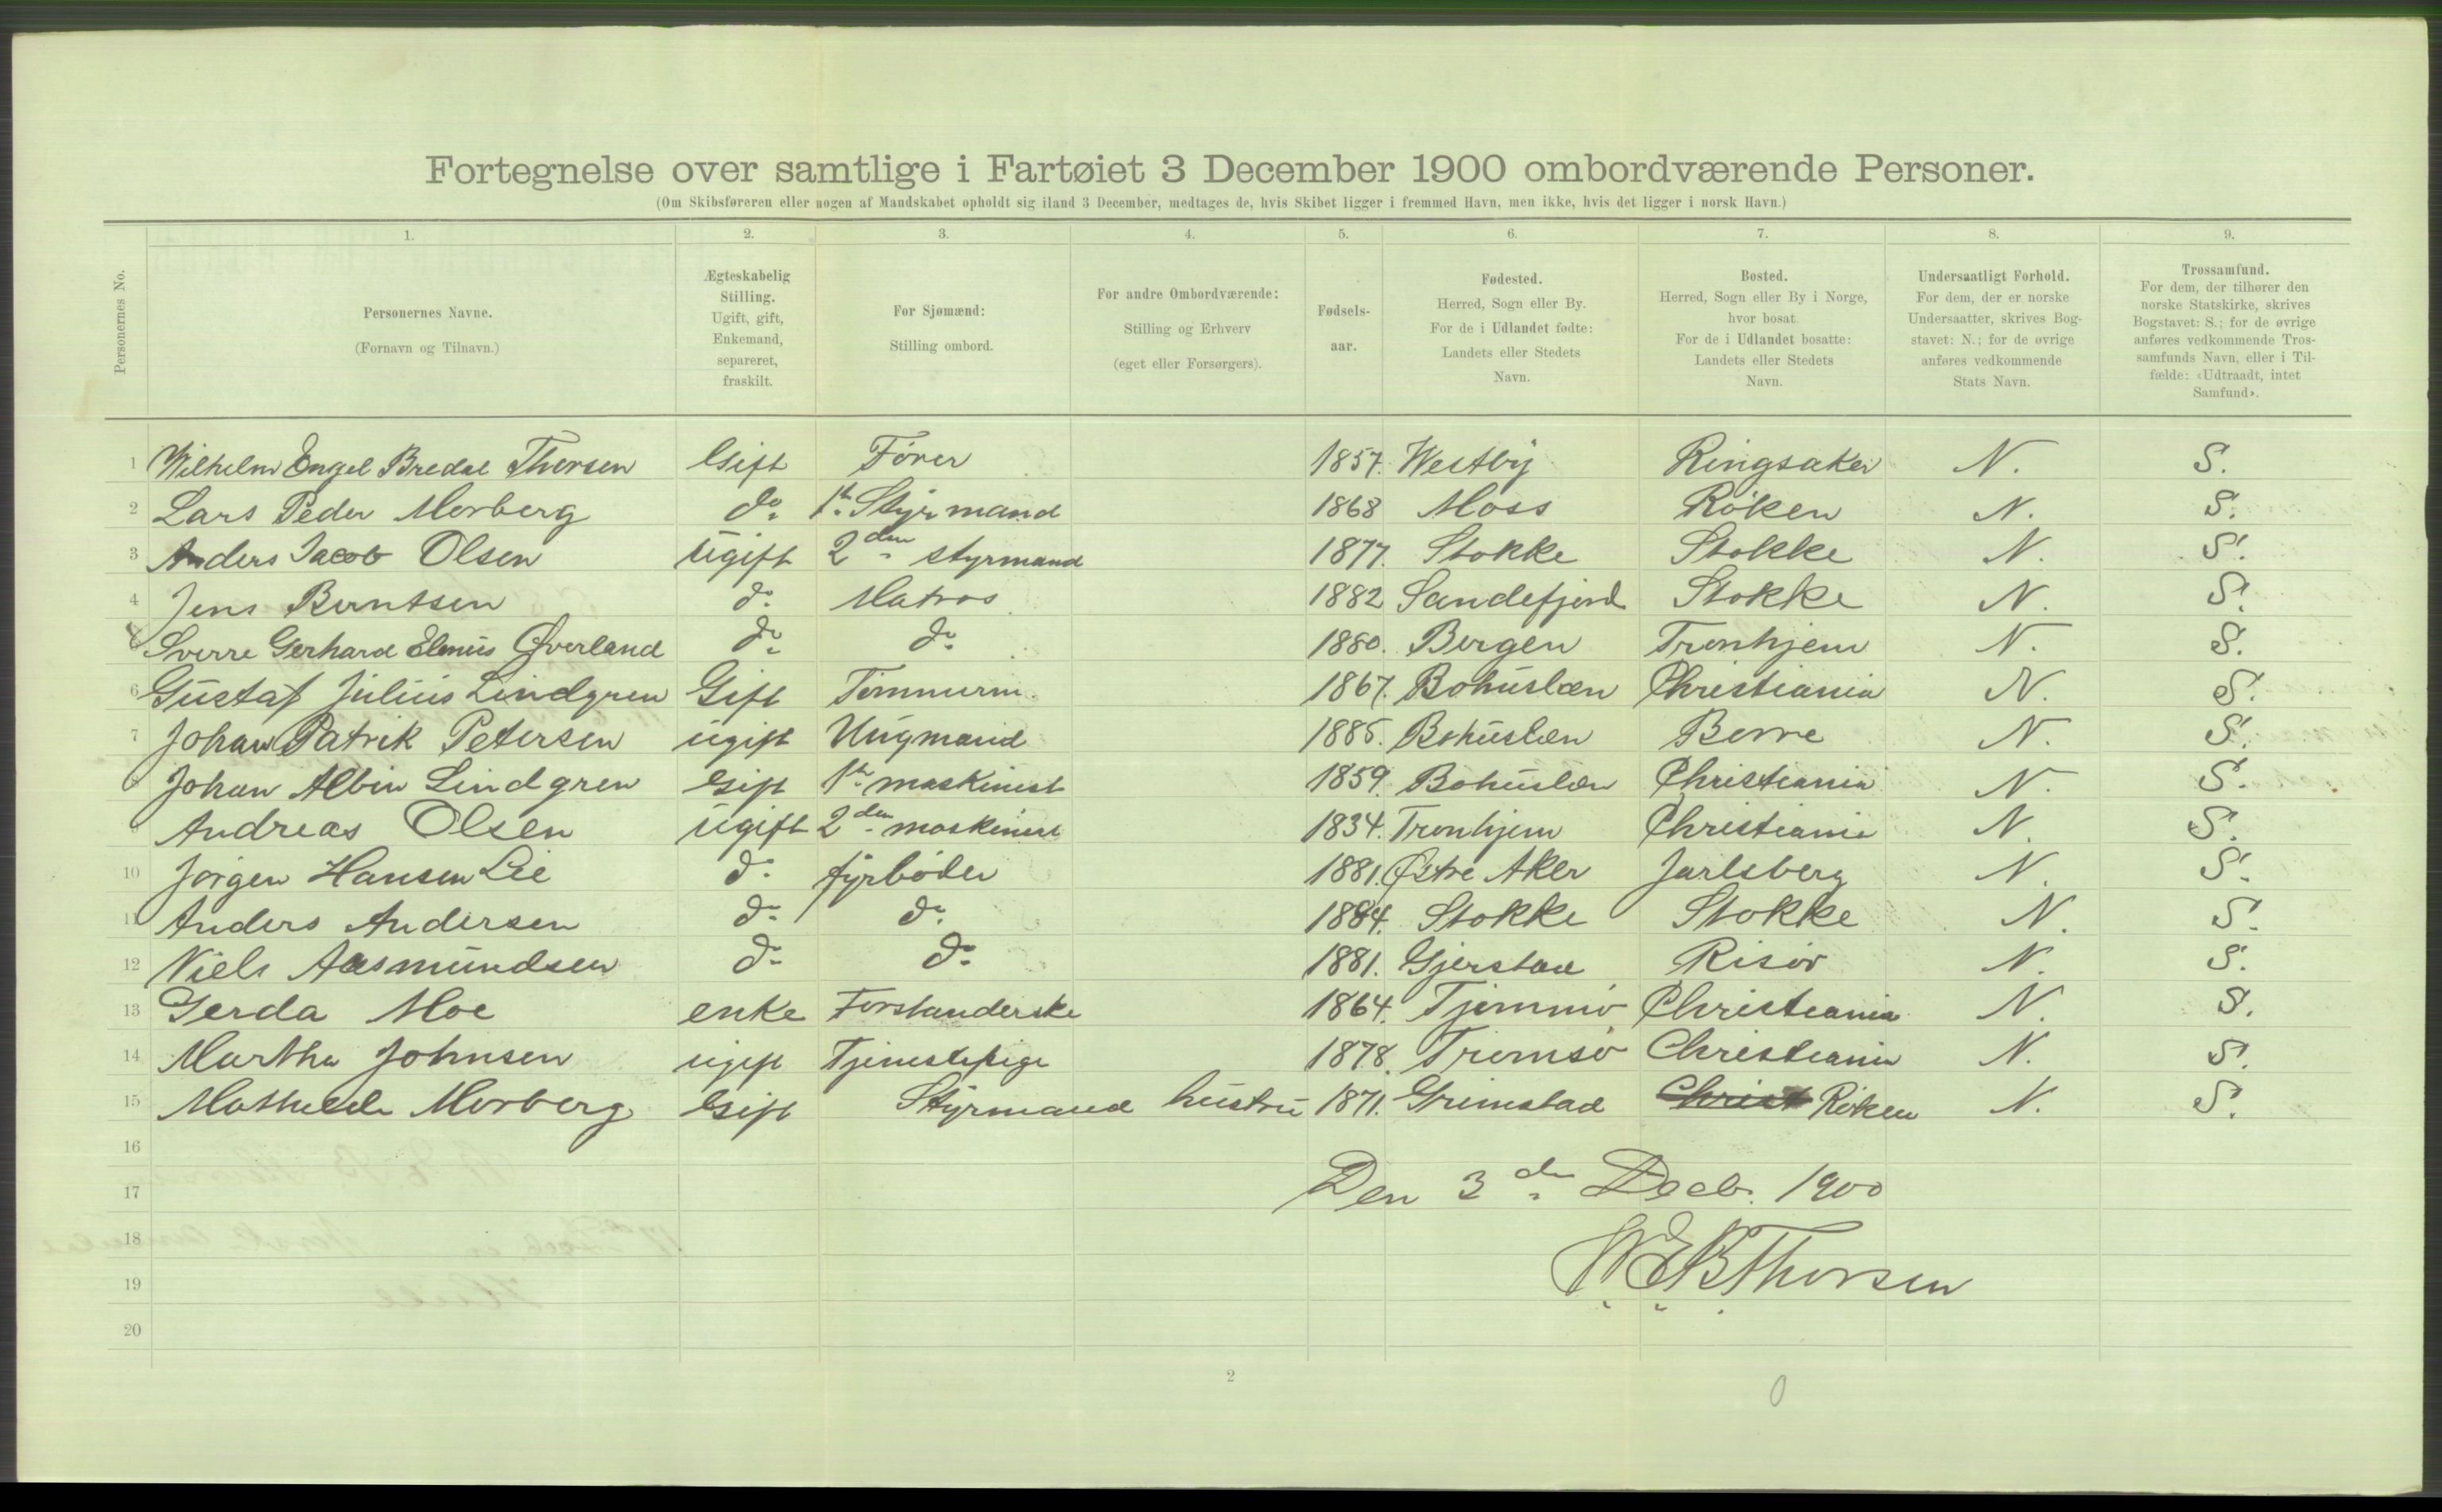 Fortegnelse over samtlige i Fartøiet 3 December 1900 ombordværende Personer.
(Om Skibsføreren eller nogen af Mandskabet opholdt sig iland 3 December, medtages de, hvis Skibet ligger i fremmed Havn, men ikke, hvis det ligger i norsk Havn.)
Personernes No.
1. Personernes Navne. (Fornavn og Tilnavn.)
2. Ægteskabelig Stilling. Ugift, gift, Enkemand, separeret, fraskilt.
3. For Sjømænd: Stilling ombord.
4. For andre Ombordværende: Stilling og Erhverv (eget eller Forsørgers).
5. Fødsels-aar.
6. Fødested. Herred, Sogn eller By. For de i Udlandet fødte: Landets eller Stedets Navn.
7. Bosted. Herred, Sogn eller By i Norge, hvor bosat. For de i Udlandet bosatte: Landets eller Stedets Navn.
8. Undersaatligt Forhold. For dem, der er norske Undersaatter, skrives Bogstavet: N.; for de øvrige anføres vedkommende Stats Navn.
9. Trossamfund. For dem, der tilhører den norske Statskirke, skrives Bogstavet: S.; for de øvrige anføres vedkommende Trossamfunds Navn, eller i Tilfælde: «Udtraadt, intet Samfund».
1 Wilhelm Engel Bredal Thorsen Gift Fører 1857. Westby Ringsaker N. S.
2 Lars Peder Morberg do 1ste Styrmand 1868 Moss Røken N. S.
3 Anders Jacob Olsen Ugift 2den styrmand 1877. Stokke Stokke N. S.
4 Jens Berntsen do Matros 1882 Sandefjord Stokke N. S.
Sverre Gerhard Elenius Øverland do do 1880. Bergen Tronhjem N. S.
6 Gustaf Julius Lindgren Gift Tømmerm. 1867. Bohuslæn Christiania N. S.
7 Johan Patrik Petersen ugift Ungmand 1885. Bohuslæn Borre N. S.
Johan Albin Lindgren Gift 1ste maskinist 1859. Bohuslæn Christiania N. S.
Andreas Olsen ugift 2den maskinist 1834. Tronhjem Christiania N. S.
10 Jørgen Hansen Lie do fyrbøder 1881. Østre Aker Jarlsberg N. S.
11 Anders Andersen do do 1884. Stokke Stokke N. S.
12 Niels Aasmundsen do do 1881. Gjerstad Risør N. S.
13 Gerda Moe enke Forstanderske 1864. Tjømmø Christiania N. S.
14 Martha Johnsen ugift Tjenestepige 1878. Tromsø Christiania N. S.
15 Mathilde Morberg Gift Styrmand hustru 1871. Grimstad Christ Røken N. S.
16
Den 3den Decb. 1900
17
18
W. E. B. Thorsen
19
20
2